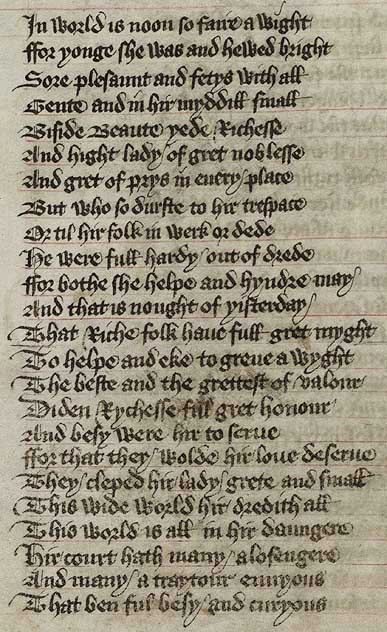 In world is noon so faire a wight
ffor yonge she was and hewed bright
Sore plesaunt and fetys with all
Gente and in hir myddill small
Biside Beaute yede Richesse
And hight lady of gret noblesse
And gret of prys in euery place
But who so durste to hir trespace
Or til hir folk in werk or dede
He were full hardy out of drede
ffor bothe she helpe and hyndre may
And that is nought of yisterday
That Riche folk haue full gret myght
To helpe and eke to greue a wyght
The beste and the grettest of valour
Diden Rychesse full gret honour
And besy were hir to serue
ffor that they wolde hir loue deserue
They cleped hir lady grete and small
This wide world hir dredith all
This world is all in hir daungere
Hir court hath many a losengere
And many a traytour enuyous
That ben ful besy and curyous